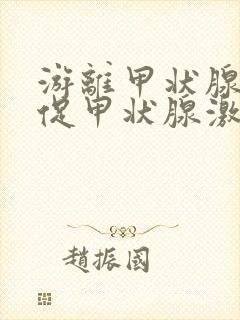 游離甲状腺
促甲状腺激
趙振國